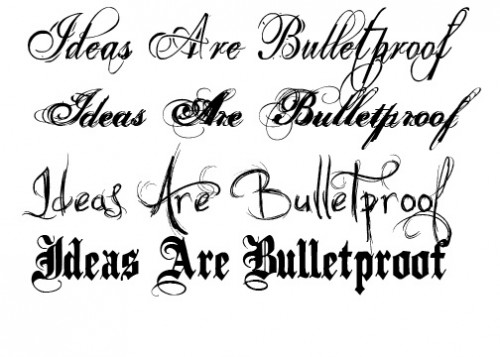 Ideas Are Bulletproof
Ideas Are Bulletproof
Ideas Are Bulletproof
Ideas Are Bulletproof